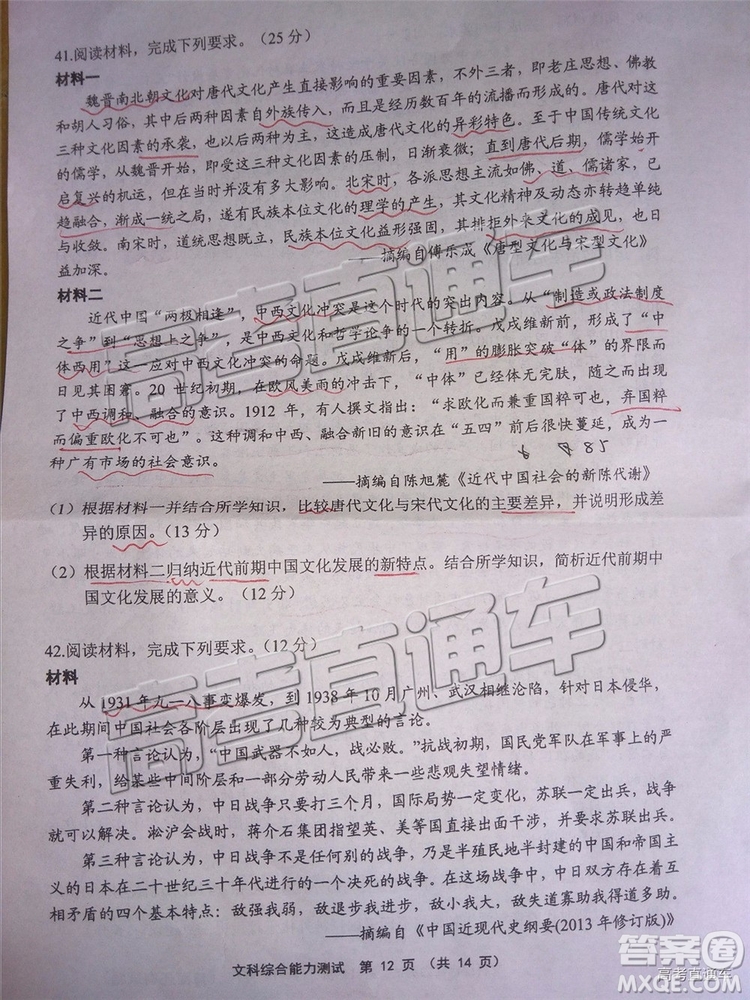 41.阅读材料，完成下列要求。（25 分）
材料一
魏晋南北朝文化对唐代文化产生直接影响的重要因素，不外三者，即老庄思想、佛教
和胡人习俗，其中后两种因素自外族传入，而且是经历数百年的流播而形成的。唐代对以上
三种文化因素的承袭，也以后两种为主，这造成唐代文化的异彩特色。至于中国传统文化
的儒学，从魏晋开始，即受这三种文化因素的压制，日渐衰微；直到唐代后期，儒学始开
启复兴的机运，但在当时并没有多大影响。北宋时，各派思想主流如佛、道、儒诸家，已
趋融合，渐成一统之局，遂有民族本位文化的理学的产生，其文化精神及动态亦转趋单纯
与收敛。南宋时，道统思想既立，民族本位文化益形强固，其排拒外来文化的成见，也日
益加深。
——摘编自傅乐成《唐型文化与宋型文化》
材料二
近代中国“两极相逢”，中西文化冲突是这个时代的突出内容。从“制造或政法制度
之争”到“思想上之争”，是中西文化和哲学论争的一个转折。戊戌维新前，形成了“中
体西用”这一应对中西文化冲突的命题。戊戌维新后，“用”的膨胀突破“体”的界限而
日见其困窘。20 世纪初期，在欧风美雨的冲击下，“中体”已经体无完肤，随而出现
了中西调和、融合的意识。1912 年，有人撰文指出：“求欧化而兼重国粹可也，弃国粹
而偏重欧化不可也”。这种调和中西、融合新旧的意识在“五四”前后很快蔓延，成为一
种广有市场的社会意识。
8 85
——摘编自陈旭麓《近代中国社会的新陈代谢》
（1）根据材料一并结合所学知识，比较唐代文化与宋代文化的主要差异，并说明形成差
异的原因。（13 分）
（2）根据材料二归纳近代前期中国文化发展的新特点。结合所学知识，简析近代前期中
国文化发展的意义。（12 分）
42.阅读材料，完成下列要求。（12 分）
材料
从 1931 年九一八事变爆发，到 1938 年 10 月广州、武汉相继沦陷，针对日本侵华，
在此期间中国社会各阶层出现了几种较为典型的言论。
第一种言论认为，“中国武器不如人，战必败。”抗战初期，国民党军队在军事上的严
重失利，给某些中间阶层和一部分劳动人民带来一些悲观失望情绪。
第二种言论认为，中日战争只要打三个月，国际局势一定变化，苏联一定出兵，战争
就可以解决。淞沪会战时，蒋介石集团指望英、美等国直接出面干涉，并要求苏联出兵。
第三种言论认为，中日战争不是任何别的战争，乃是半殖民地半封建的中国和帝国主
义的日本在二十世纪三十年代进行的一个决死的战争。在这场战争中，中日双方存在着互
相矛盾的四个基本特点：敌强我弱，敌退步我进步，敌小我大，敌失道寡助我得道多助。
——摘编自《中国近现代史纲要(2013 年修订版)》
文科综合能力测试 第 12 页 （共 14 页）
高考直通车
高考直通车
高考直通车
答案圈
MXQE.COM